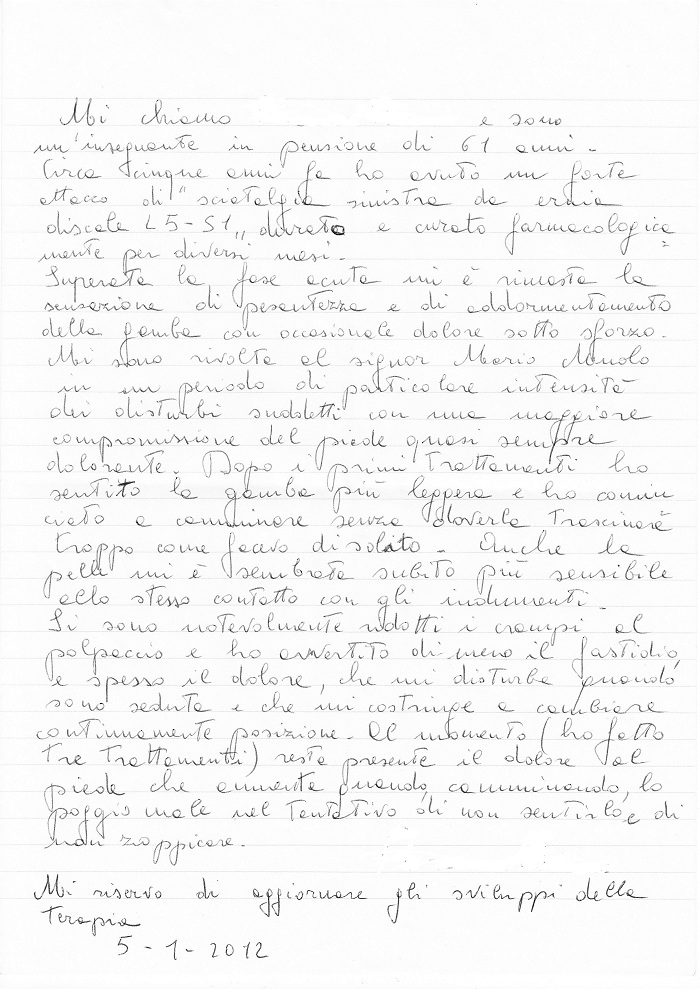 Mi chiamo e sono
un'insegnante in pensione di 61 anni -
Circa cinque anni fa ho avuto un forte
attacco di "sciatalgia sinistra da ernia
discale L5-S1,, durato e curato farmacologica=
mente per diversi mesi.
Superata la fase acuta mi è rimasta la
sensazione di pesantezza e di addormentamento
della gamba con occasionale dolore sotto sforzo.
Mi sono rivolta al signor Mario
in un periodo di particolare intensità
dei disturbi suddetti con una maggiore
compromissione del piede quasi sempre
dolorante. Dopo i primi trattamenti ho
sentito la gamba più leggera e ho comin
ciato a camminare senza doverla trascinare
troppo come facevo di solito - Anche la
pelle mi è sembrata subito più sensibile
allo stesso contatto con gli indumenti -
Si sono notevolmente ridotti i crampi al
polpaccio e ho avvertito di meno il fastidio,
e spesso il dolore, che mi disturba quando
sono seduta e che mi costringe a cambiare
continuamente posizione. Al momento (ho fatto
tre trattamenti) resta presente il dolore al
piede che aumenta quando, camminando, lo
poggio male nel tentativo di non sentirlo e di
non zoppicare.
Mi riservo di aggiornare gli sviluppi della
terapia
5-1-2012